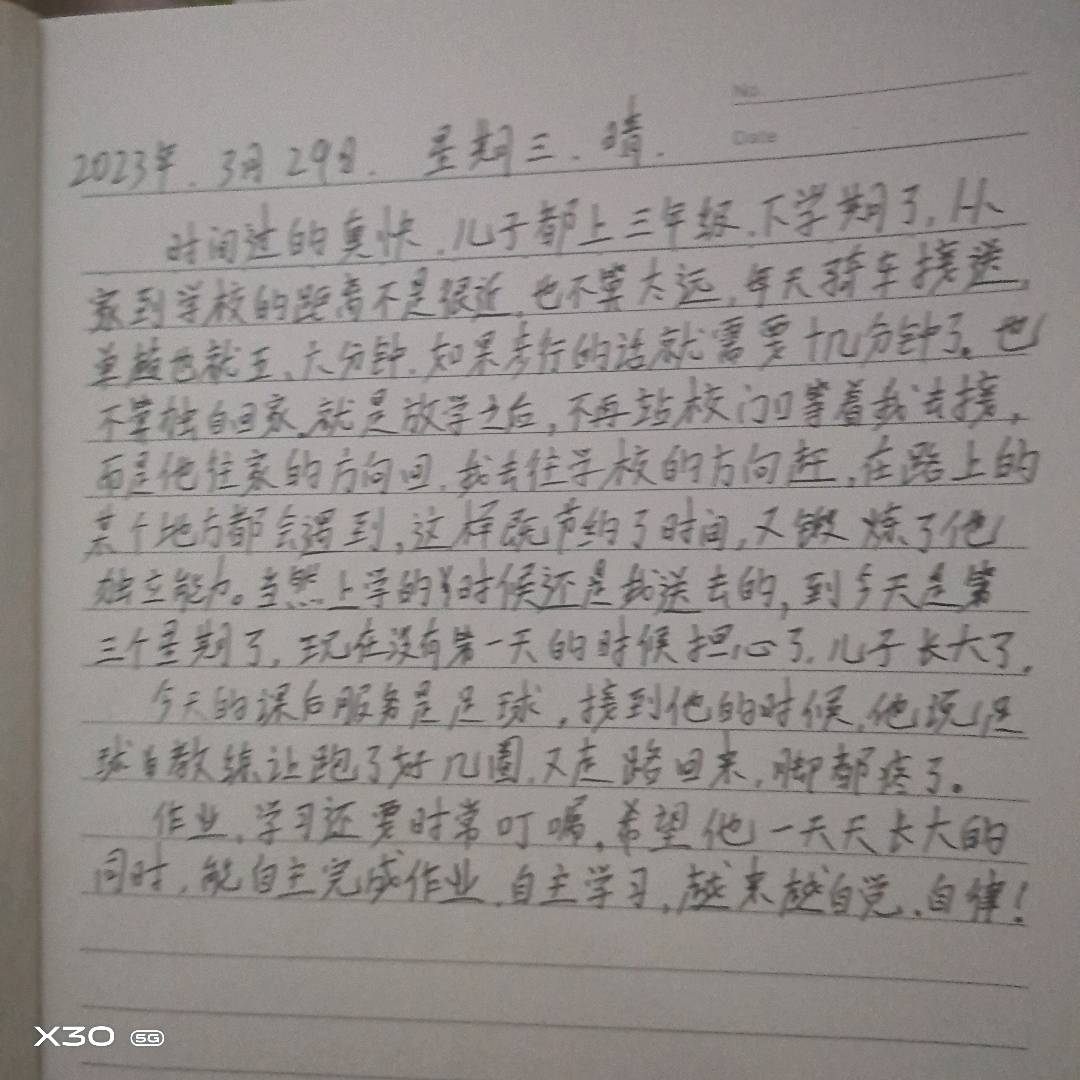 No.
Date
2023年.3月29日. 星期三.晴.
时间过的真快,儿子都上三年级.下学期了,从
家到学校的距离不是很近,也不算太远,每天骑车接送,
单趟也就五、六分钟.如果步行的话就需要十几分钟了。也
不算独自回家,就是放学之后,不再站校门口等着我去接,
而是他往家的方向回,我去往学校的方向赶,在路上的
某个地方都会遇到,这样既节约了时间,又锻炼了他
独立能力。当然上学的时候还是我送去的,到今天是第
三个星期了,现在没有第一天的时候担心了.儿子长大了.
今天的课后服务是足球,接到他的时候,他说足
球自教练让跑了好几圈,又走路回来,脚都疼了。
作业,学习还要时常叮嘱,希望他一天天长大的
同时,能自主完成作业,自主学习,越来越自觉、自律!
X30 5G